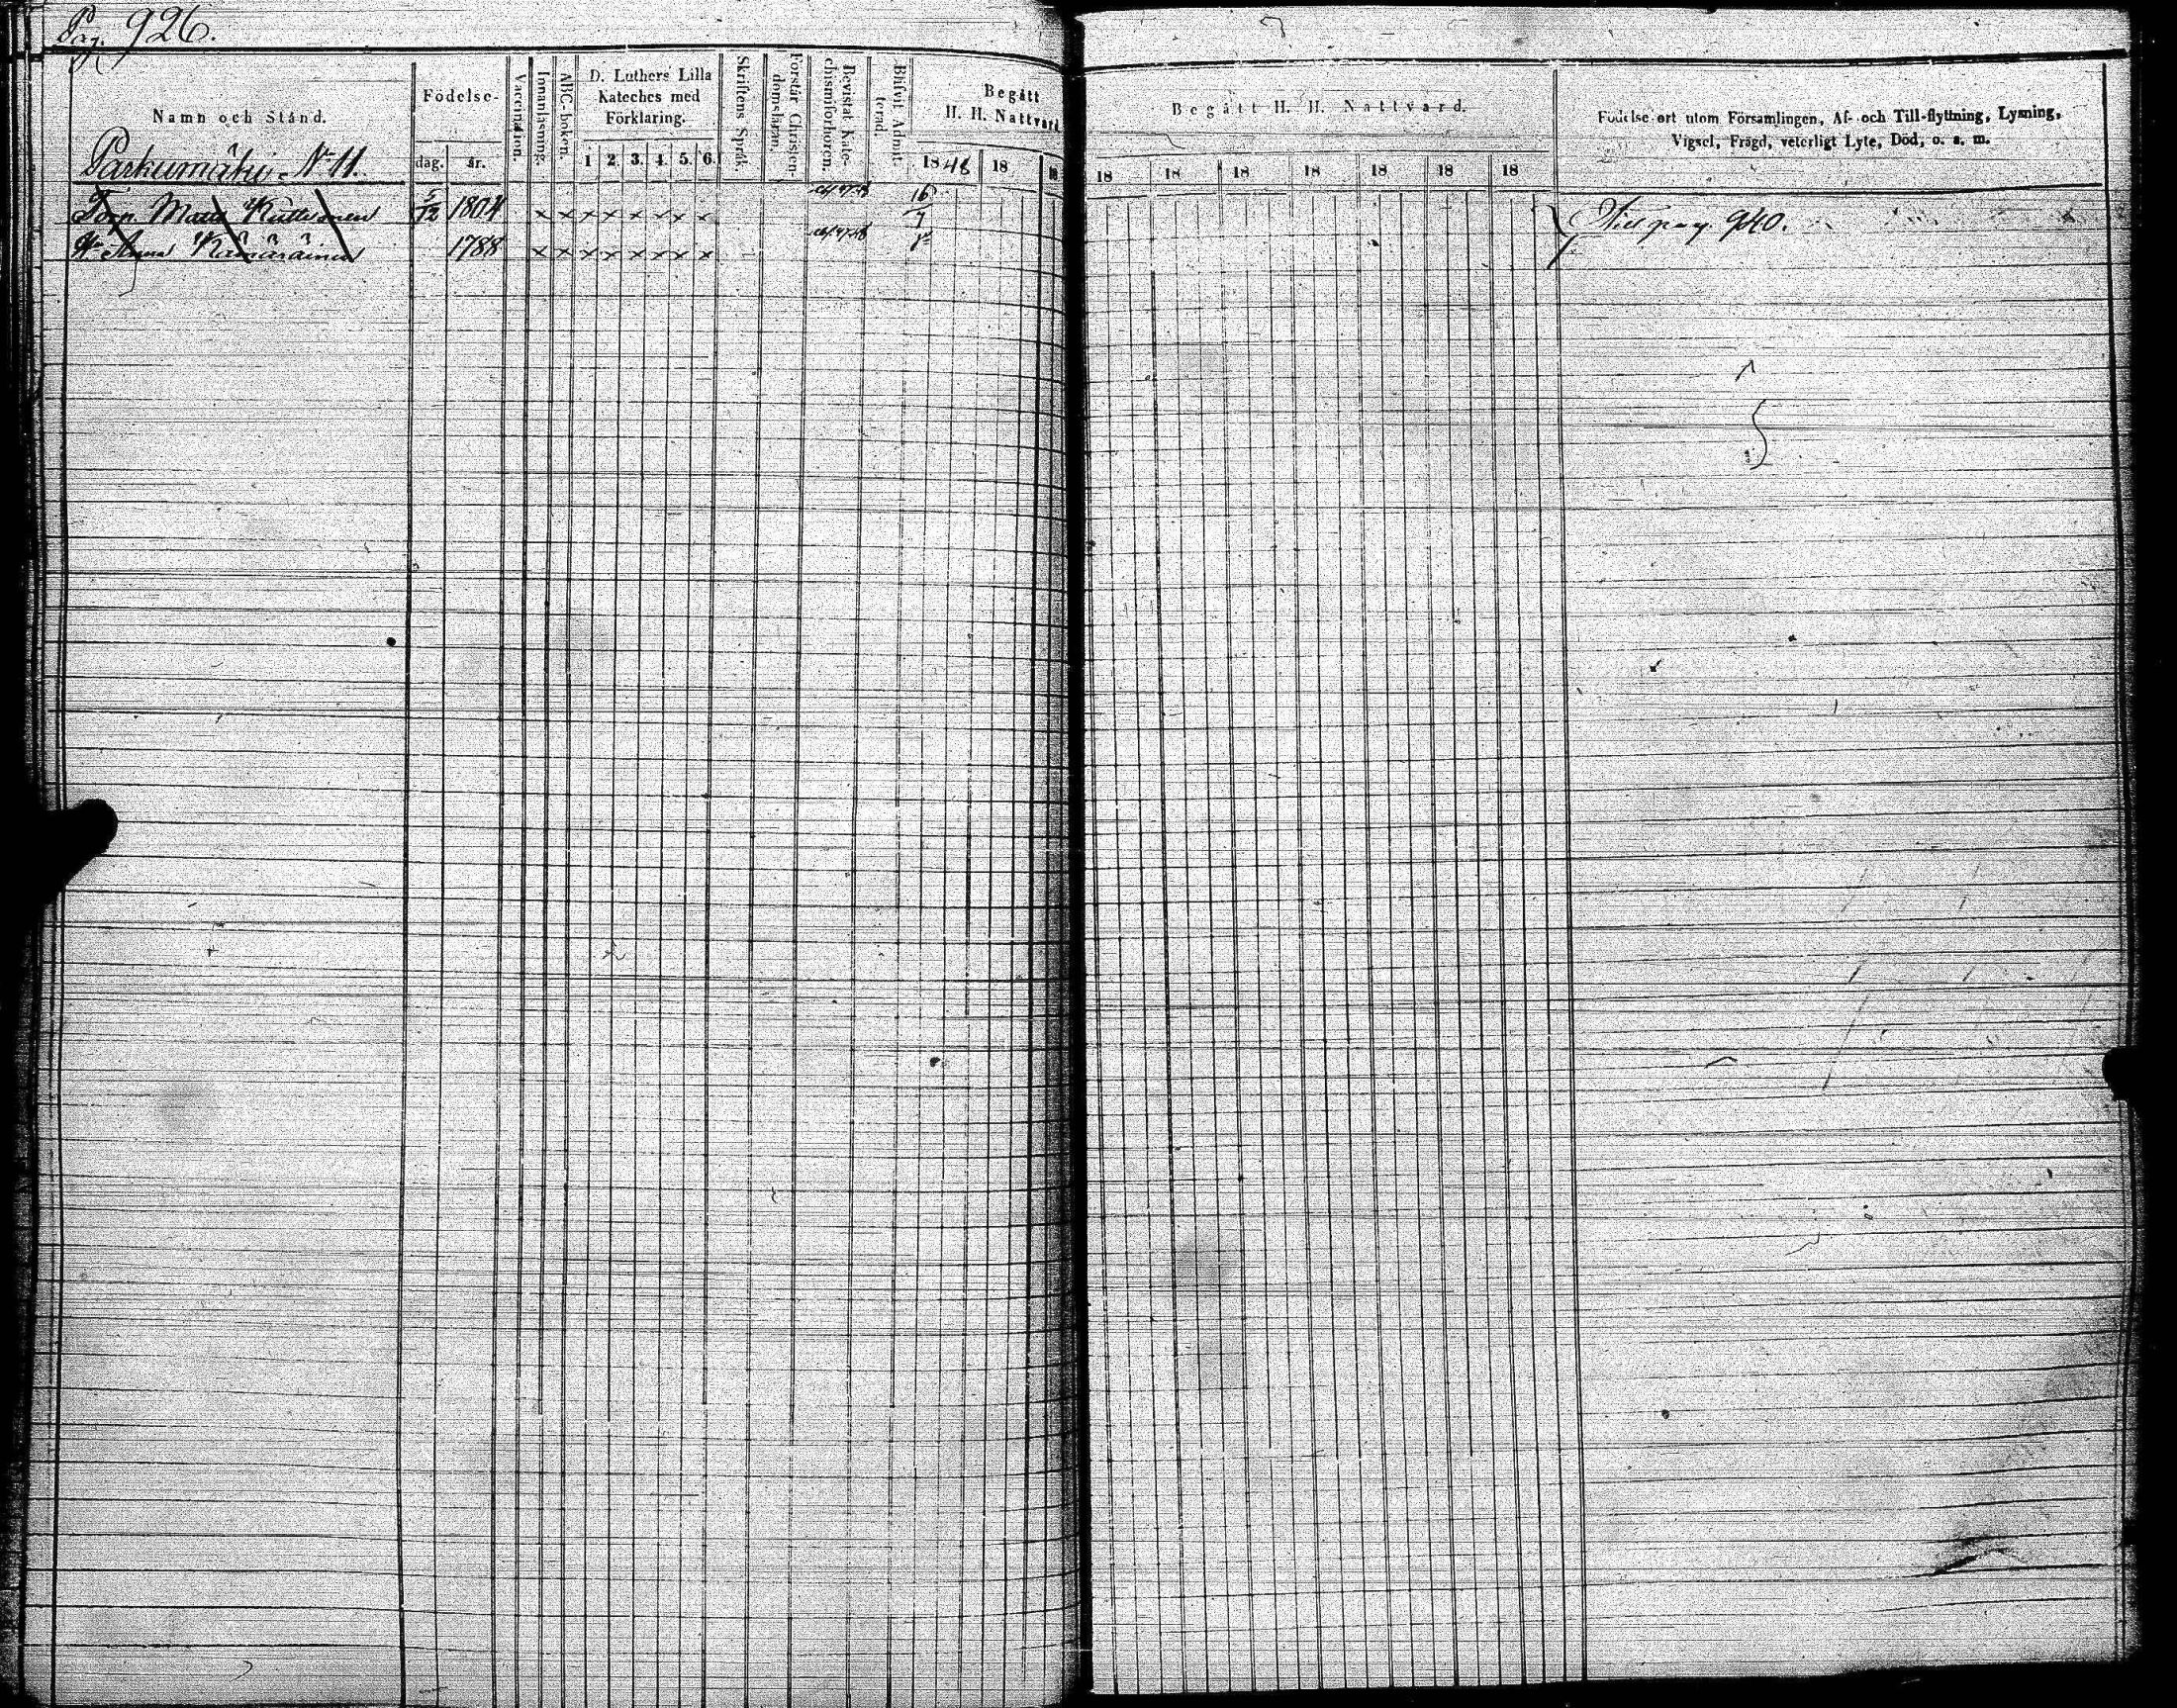 Pag. 926.
Namn och Stånd.
Födelse-
dag. år.
Vaccination.
Innanläsning.
ABC-boken.
D. Luthers Lilla
Kateches med
Förklaring.
1 2. 3. 4. 5. 6.
Skriftens Språk.
Förstår Christen-
domsläran.
Bevistat Kate-
chismiförhören.
Blifvit Admit-
terad.
Begått
H. H. Nattvard
1848 18 18
Begått H. H. Nattvard.
18 18 18 18 18 18 18
Födelse ort utom Församlingen, Af- och Till-flyttning, Lysning,
Vigsel, Frägd, veterligt Lyte, Död, o. s. m.
Parkumäki No 11.
Torp. Matts 5/12 1804 x x x x x x x x 16/7 Till pag. 940.
Hu Anna 1788 x x x x x x x x